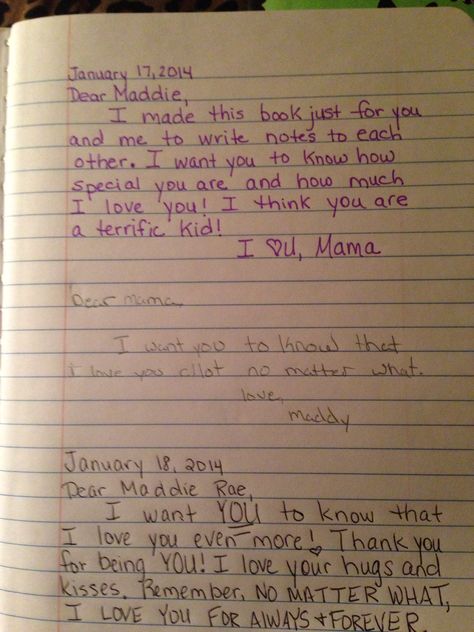 January 17, 2014
Dear Maddie,
I made this book just for you
and me to write notes to each
other. I want you to know how
special you are and how much
I love you! I think you are
a terrific kid!
I ♡ U, Mama
Dear mama,
I want you to know that
i love you allot no matter what.
love,
maddy
January 18, 2014
Dear Maddie Rae,
I want YOU to know that
I love you even more! Thank you
for being YOU! I love your hugs and
kisses. Remember, NO MATTER WHAT,
I LOVE YOU FOR AlWAYS + FOREVER.